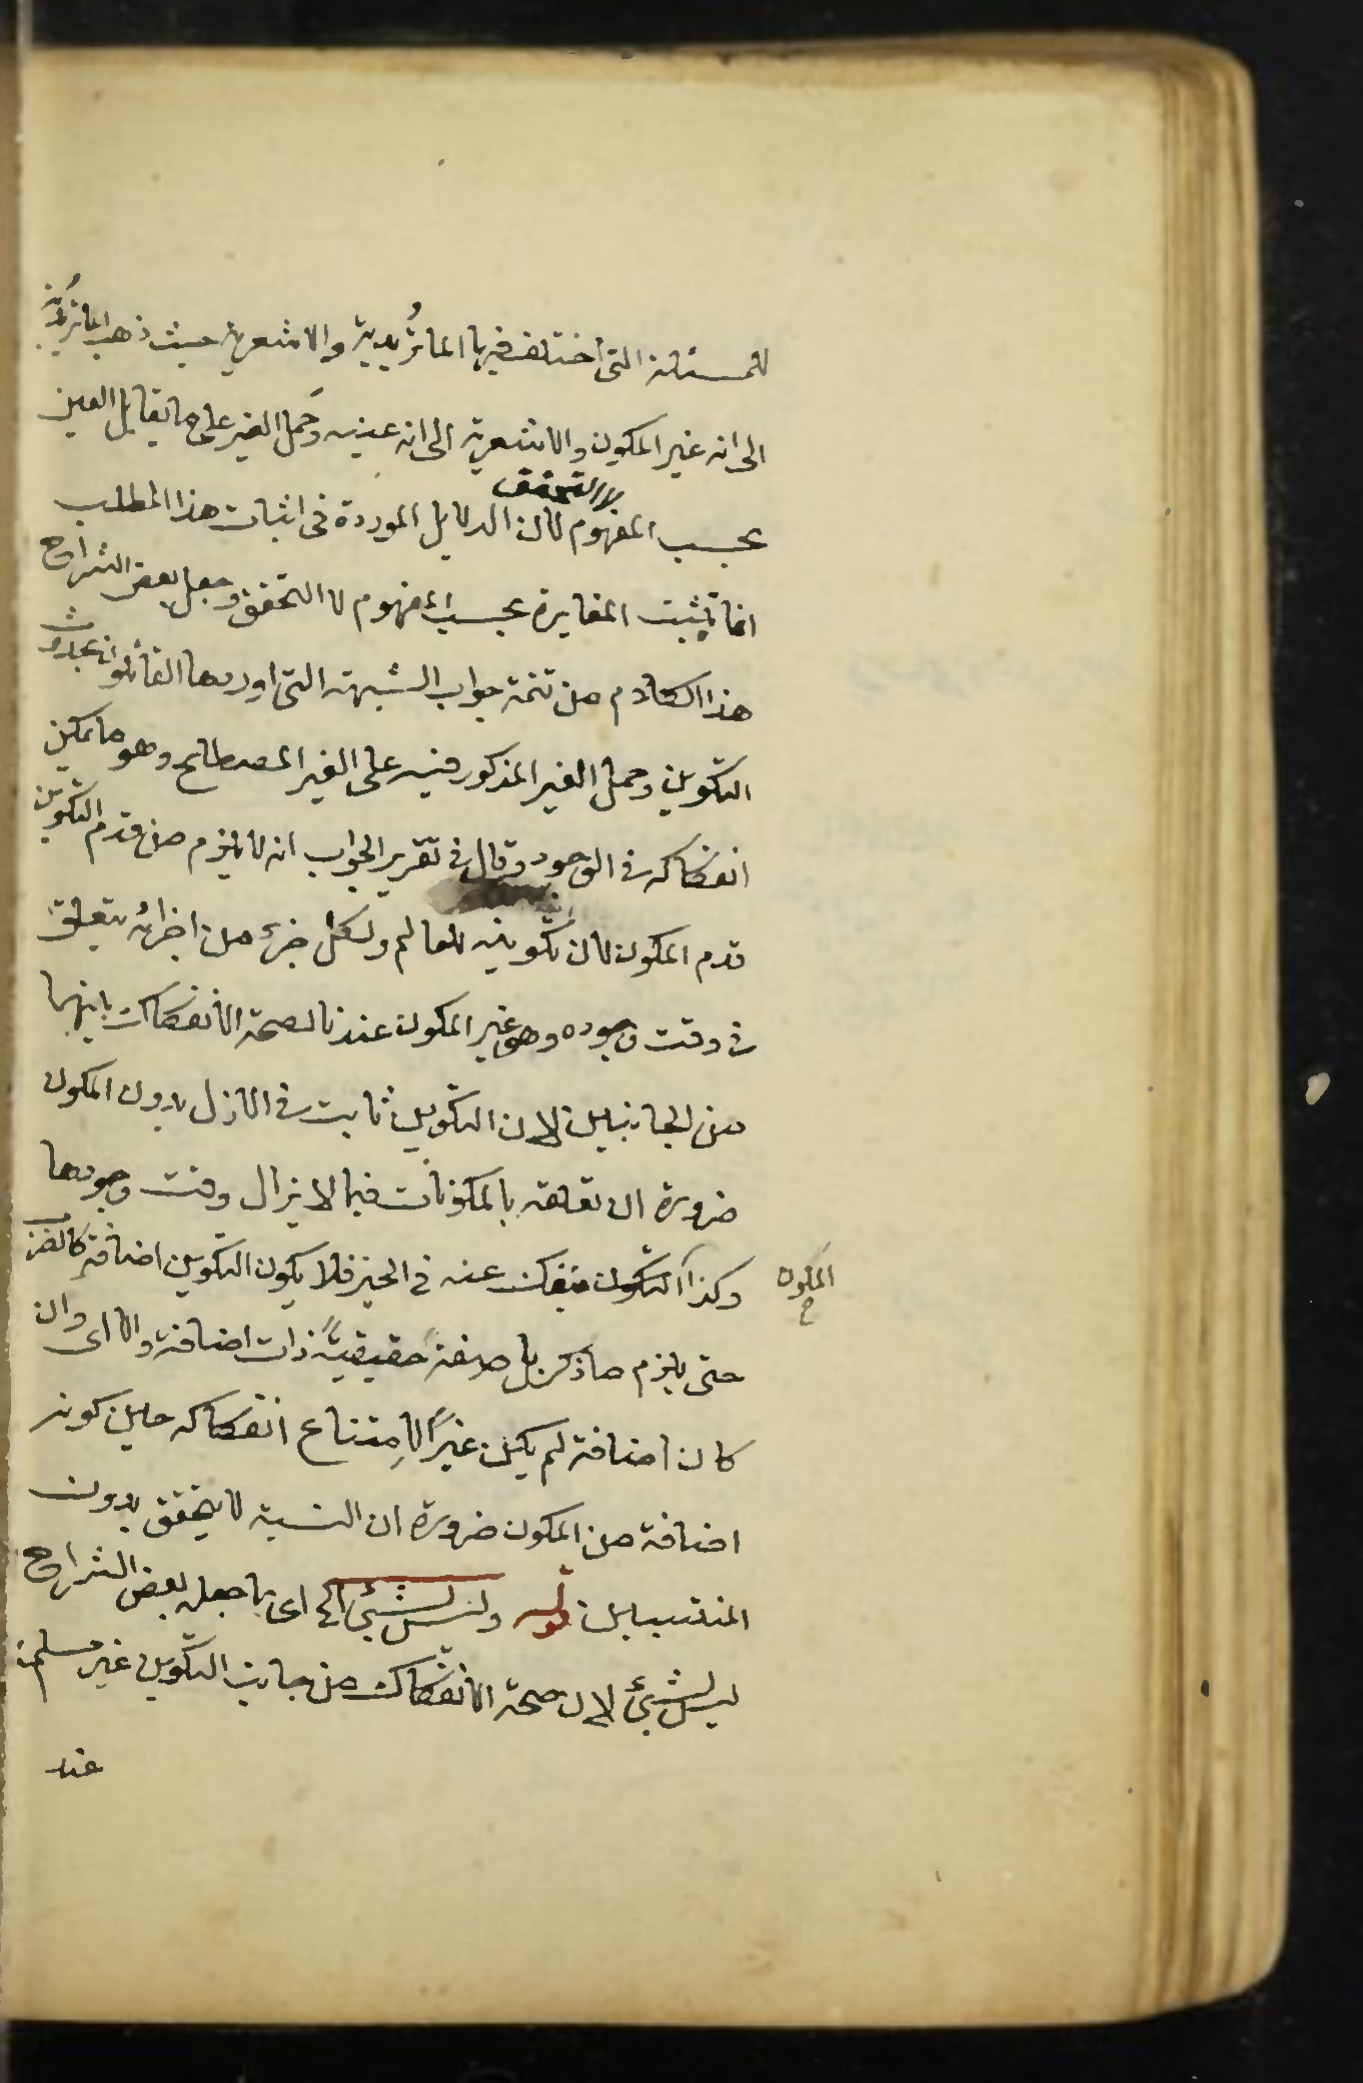 للمسئلة التى اختلف فيها الماتُريدية والاشعرية حيث ذهب الماتريديّة
الى انه غير المكون والاشعرية الى انه عينه وحَمل الغير على ما يقابل العين
لا التحقق
بحسب المفهوم لان الدلايل الموردة فى اثبات هذا المطلب
انما يثبت المغايرة بحسب المفهوم لا التحقق وجعل بعض الشراح
هذا الكلام من تتمة جواب الشبهة التى اوردها القائلون بحدوث
التكوين وحمل الغير المذكور فيه على الغير المصطلح وهو ما يمكن
انفكاكه فى الوجود وقال فى تقرير الجواب انه لا يلزم من قدم التكوين
قدم المكون لان تكوينه للعالم ولكل جزء من اجزائه يتعلق
فى وقت وجوده وهو غير المكون عندنا لصحة الانفكاك بينهما
من الجانبين لان التكوين ثابت فى الازل بدون المكون
ضرورة ان تعلقه بالمكونات فيما لا يزال وقت وجودها
وكذا التكون منفك عنه فى الحيز فلا يكون التكوين اضافة كالضرب
المكون
ح
حتى يلزم ما ذكر بل صفةً حقيقيةً ذات اضافة والا اى وان
كان اضافة لم يكن غيرًا لامتناع انفكاكه حين كونه
اضافة من المكون ضرورة ان النسبة لا يتحقق بدون
المنتسبين قوله وليس بشئ الخ اى ما جعله بعض الشراح
ليس بشئ لان صحة الانفكاك من جانب التكوين غير مسلمة
عند